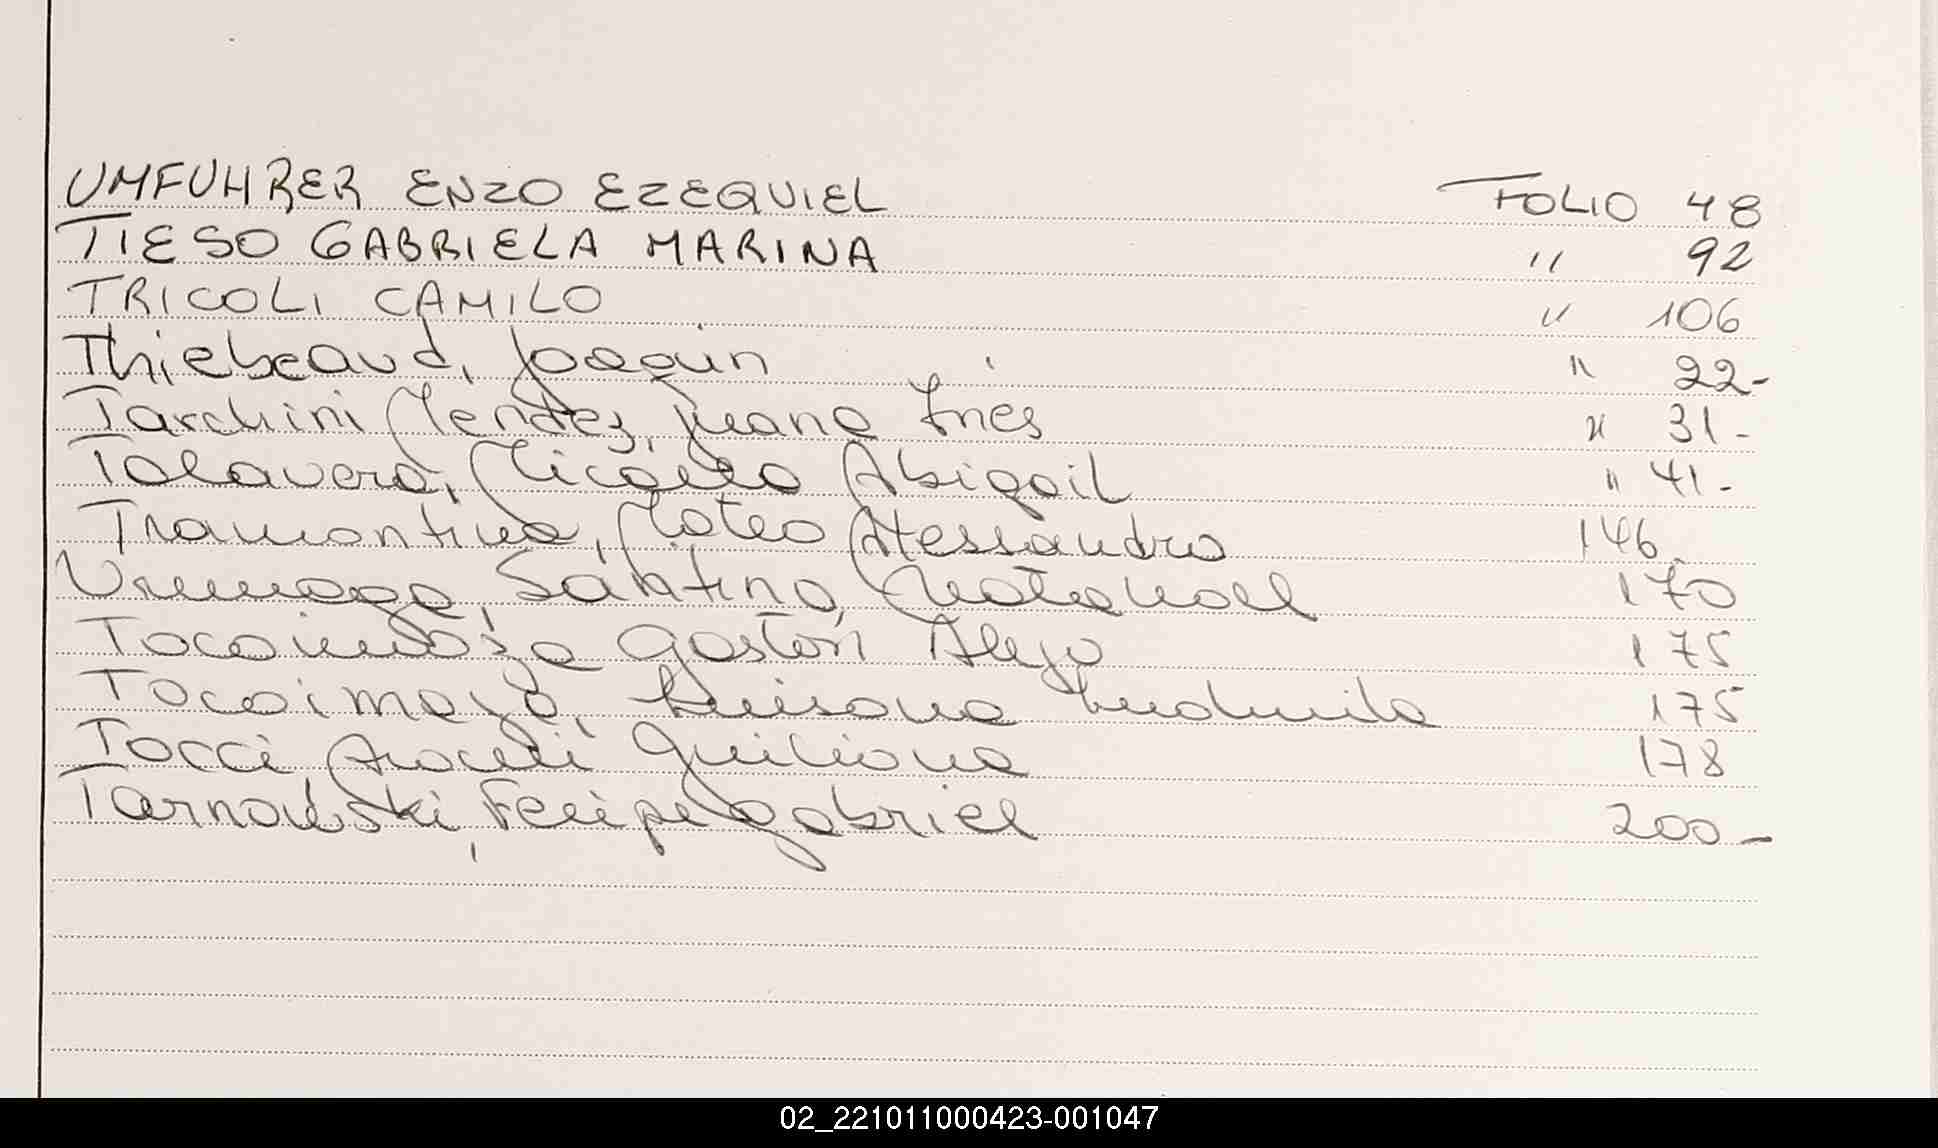 UMFUHRER ENZO EZEQUIEL FOLIO 48
TIESO GABRIELA MARINA " 92
TRICOLI CAMILO " 106
Thiebeaud, Joaquin " 22-
Tarchini Mendez, Juana Inés " 31-
Talavera, Micaela Abigail " 41-
Tramontina, Mateo Alessandro 146-
Santino, 170
Gastón Alejo 175
Tocaimaza, Luisana Ludmila 175
Tocci, Araceli Guiliana 178
Tarnowski, Felipe Gabriel 200-
02_221011000423-001047